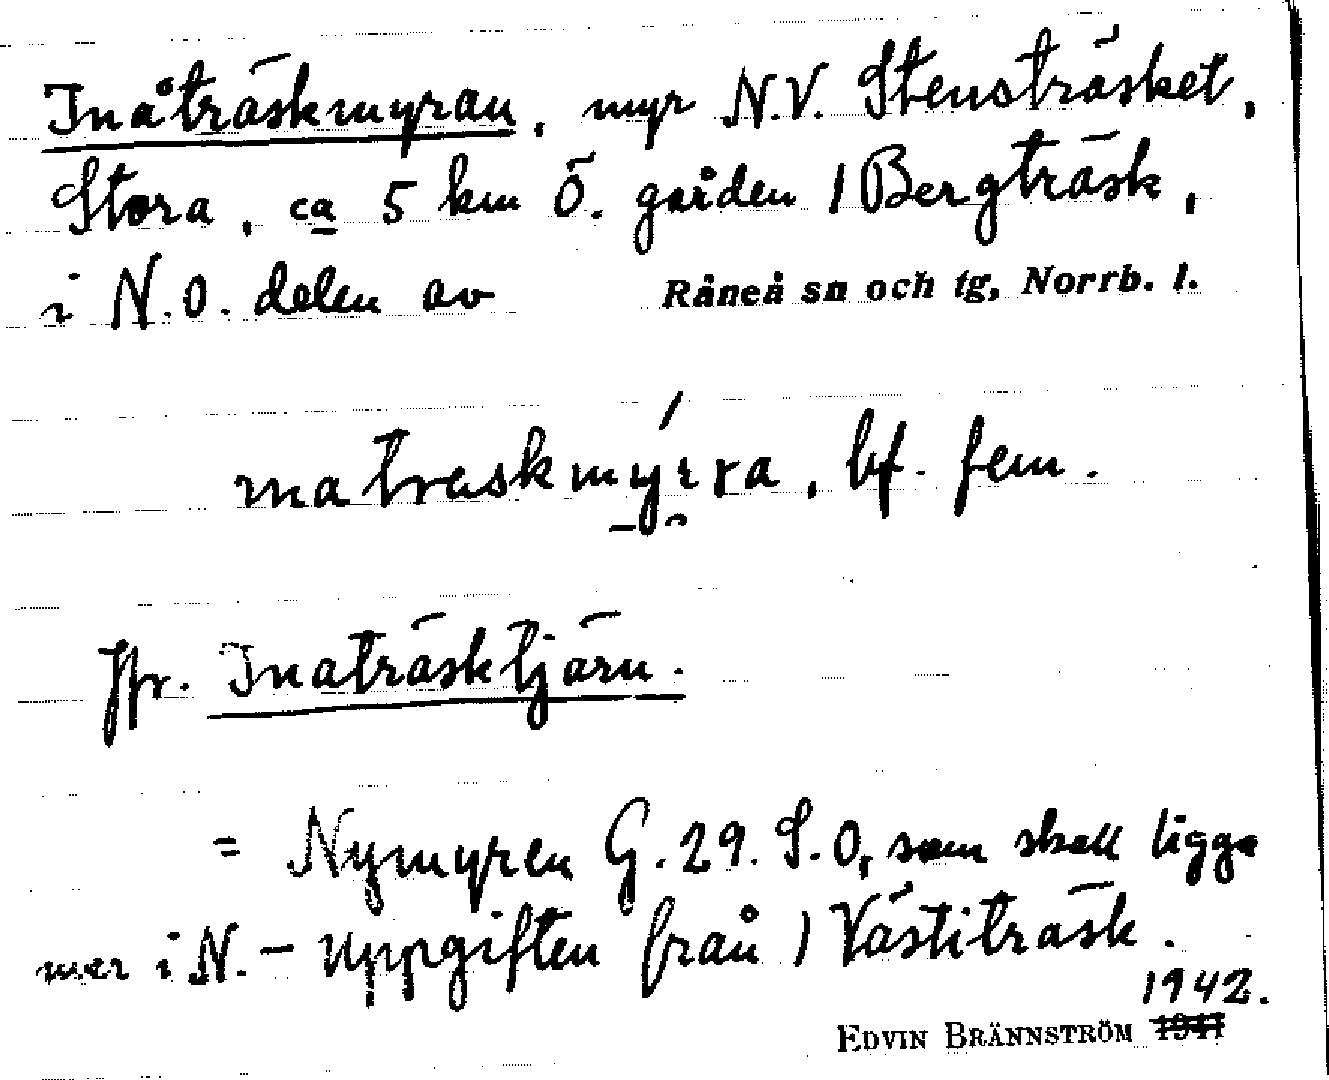 Inåträskmyran, myr N.V. Stensträsket,
Stora, ca 5 km Ö. gården 1 Bergträsk,
i N.O. delen av Råneå sn och tg, Norrb. l.
matraskmyrra, bf. fem.
Jfr. Inaträsktjärn.
= Nymyren G. 29. S.O, som skall ligga
mer i N. - Uppgiften från 1 Västiträsk.
1942.
EDVIN BRÄNNSTRÖM 1941